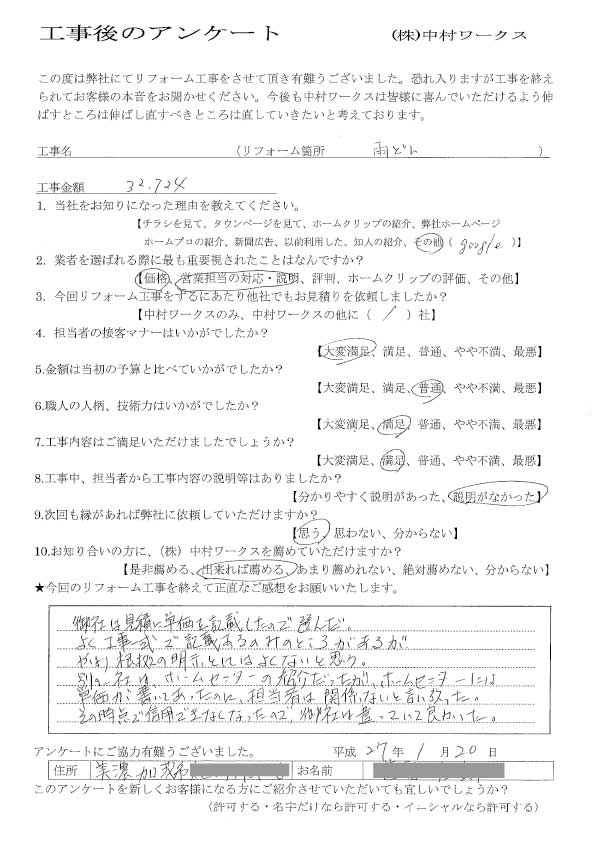 工事後のアンケート (株)中村ワークス
この度は弊社にてリフォーム工事をさせて頂き有難うございました。恐れ入りますが工事を終え
られてお客様の本音をお聞かせください。今後も中村ワークスは皆様に喜んでいただけるよう伸
ばすところは伸ばし直すべきところは直していきたいと考えております。
工事名 (リフォーム箇所 雨どい )
工事金額 32.724
1. 当社をお知りになった理由を教えてください。
【チラシを見て、タウンページを見て、ホームクリップの紹介、弊社ホームページ
ホームプロの紹介、新聞広告、以前利用した、知人の紹介、その他( google )】
2. 業者を選ばれる際に最も重要視されたことはなんですか?
【価格、営業担当の対応・説明、評判、ホームクリップの評価、その他】
3. 今回リフォーム工事をするにあたり他社でもお見積りを依頼しましたか?
【中村ワークスのみ、中村ワークスの他に( / )社】
4. 担当者の接客マナーはいかがでしたか?
【大変満足、満足、普通、やや不満、最悪】
5.金額は当初の予算と比べていかがでしたか?
【大変満足、満足、普通、やや不満、最悪】
6.職人の人柄、技術力はいかがでしたか?
【大変満足、満足、普通、やや不満、最悪】
7.工事内容はご満足いただけましたでしょうか?
【大変満足、満足、普通、やや不満、最悪】
8.工事中、担当者から工事内容の説明等はありましたか?
【分かりやすく説明があった、説明がなかった】
9.次回も縁があれば弊社に依頼していただけますか?
【思う、思わない、分からない】
10.お知り合いの方に、(株)中村ワークスを薦めていただけますか?
【是非薦める、出来れば薦める、あまり薦めれない、絶対薦めない、分からない】
★今回のリフォーム工事を終えて正直なご感想をお願いいたします。
御社は見積に単価を記載したので選んだ。
よく工事一式で記載あるのみのところがあるが
やはり根拠の明示としてはよくないと思う。
別の社は、ホームセンターの紹介だったが、ホームセンターには
単価が書いてあったのに、担当者は関係ないと言い放った。
その時点で信用できなくなったので、御社は昔っていて良かった。
アンケートにご協力有難うございました。 平成 27年 1月 20日
住所 美濃加茂市 お名前
このアンケートを新しくお客様になる方にご紹介させていただいても宜しいでしょうか?
(許可する・名字だけなら許可する・イニシャルなら許可する)